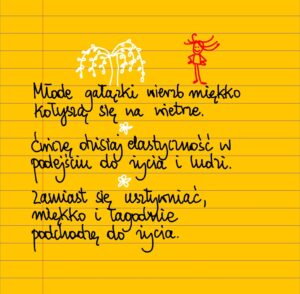 Młode gałązki wierzb miękko
kołyszą się na wietrze.
Ćwiczę dzisiaj elastyczność w
podejściu do życia i ludzi.
Zamiast się usztywniać,
miękko i łagodnie
podchodzę do życia.